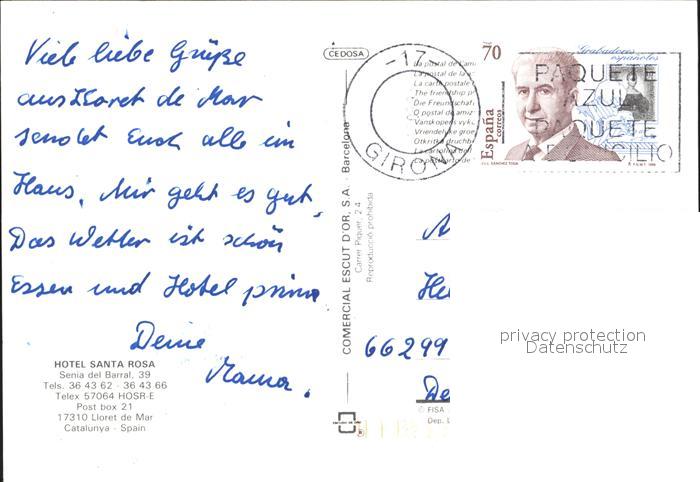 Viele liebe Grüße
aus Lloret de Mar
sendet Euch alle im
Haus, Mir geht es gut,
Das Wetter ist schön
Essen und Hotel prima
Deine
Mama.
HOTEL SANTA ROSA
Senia del Barral, 39
Tels. 36 43 62 - 36 43 66
Telex 57064 HOSR-E
Post box 21
17310 Lloret de Mar
Catalunya - Spain
CEDOSA
COMERCIAL ESCUT D'OR, S.A. · Barcelona
Carrer Piquer, 2 4
Reproducció prohibida
-17-
GIRONA
La postal de l'ami
La postal de la
La carte postale
The friendship p
Die Freundschaf
O postal de amiz
Vanskapens vyk
Vriendelijke groe
Otkritka druzhb
La cartolina del
La postkarto de
70
España
correos
Grabadores
españoles
PAQUETE
AZUL
PAQUETE
A DOMICILIO
66299
privacy protection
Datenschutz
© FISA
Dep. L